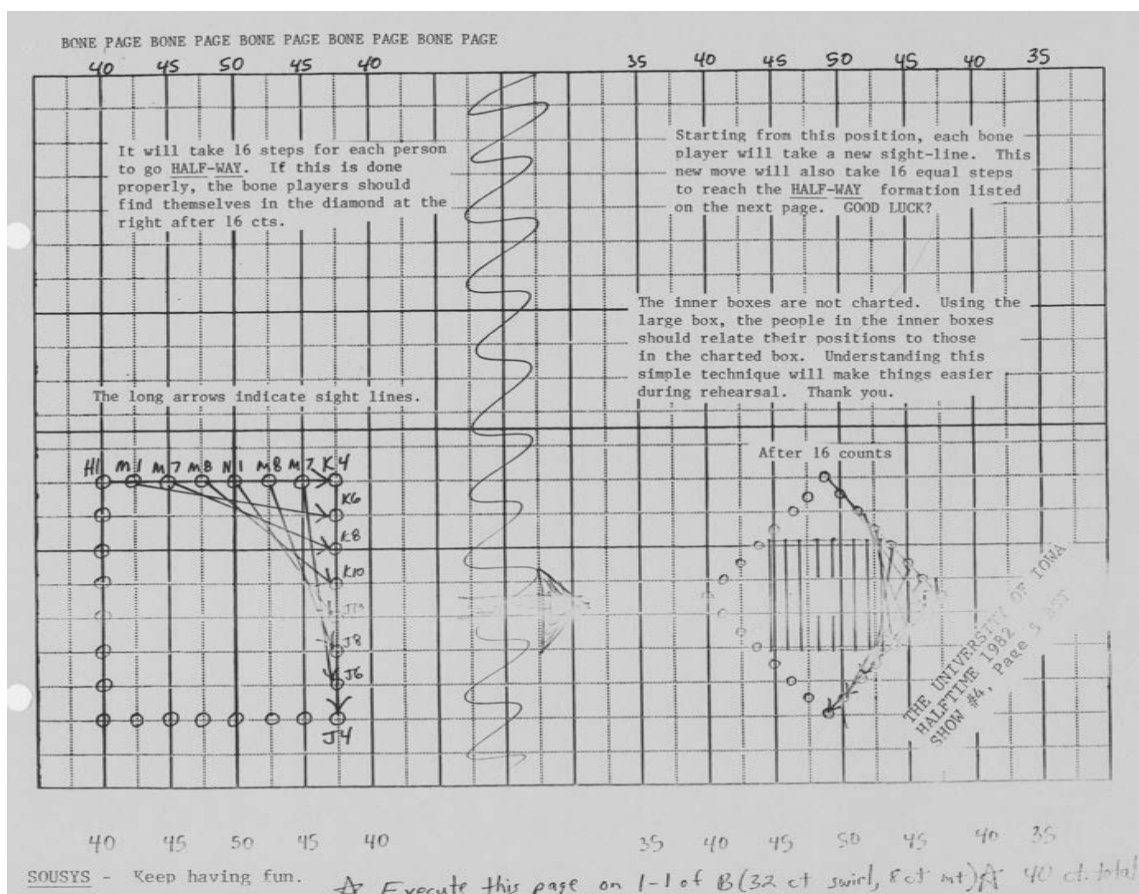 BONE PAGE BONE PAGE BONE PAGE BONE PAGE BONE PAGE
40 45 50 45 40 35 40 45 50 45 40 35
It will take 16 steps for each person
to go HALF-WAY. If this is done
properly, the bone players should
find themselves in the diamond at the
right after 16 cts.
Starting from this position, each bone
player will take a new sight-line. This
new move will also take 16 equal steps
to reach the HALF-WAY formation listed
on the next page. GOOD LUCK?
The inner boxes are not charted. Using the
large box, the people in the inner boxes
should relate their positions to those
in the charted box. Understanding this
simple technique will make things easier
during rehearsal. Thank you.
The long arrows indicate sight lines.
H1 M1 M7 M8 N1 M8 M7 K4
K6
K8
K10
J10
J8
J6
J4
After 16 counts
THE UNIVERSITY OF IOWA
HALFTIME 1982
SHOW #4, Page 5
40 45 50 45 40 35 40 45 50 45 40 35
SOUSYS - Keep having fun.
☆ Execute this page on 1-1 of B (32 ct swirl, 8 ct mt) ☆ 40 ct. total